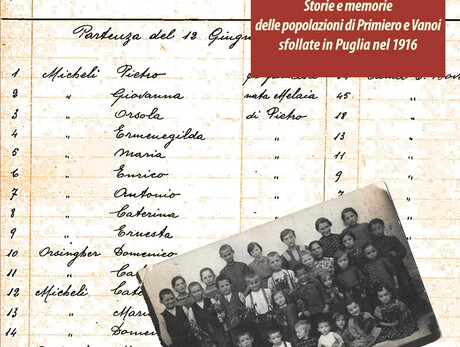 Storie e memorie
delle popolazioni di Primiero e Vanoi
sfollate in Puglia nel 1916
Partenza del 13 Giugn
1 Micheli Pietro
2 " Giovanna nata Melaia 45
3 " Orsola di Pietro 18
4 " Ermenegilda " 13
5 " Maria " 11
6 " Enrico " 9
7 " Antonio "
8 " Caterina
9 " Ernesta
10 Orsingher Domenico
11 " Ca
12 Micheli Cate
13 " Mar
14 " Dome